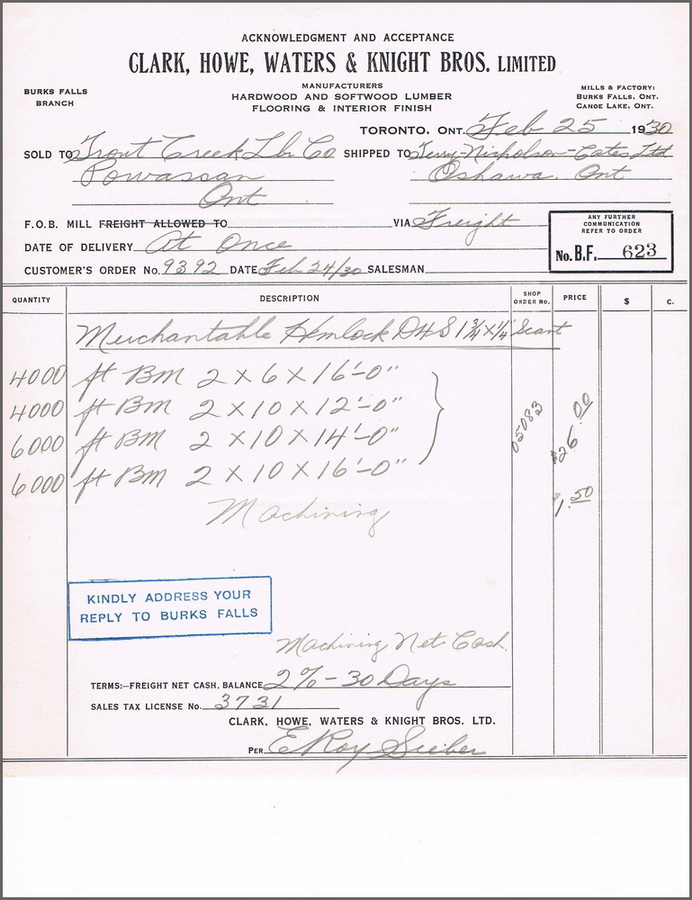 ACKNOWLEDGMENT AND ACCEPTANCE
CLARK, HOWE, WATERS & KNIGHT BROS. LIMITED
MANUFACTURERS
HARDWOOD AND SOFTWOOD LUMBER
FLOORING & INTERIOR FINISH
BURKS FALLS
BRANCH
MILLS & FACTORY:
BURKS FALLS, ONT.
CANOE LAKE, ONT.
TORONTO, ONT. Feb 25 1930
SOLD TO Trout Creek Lbr Co SHIPPED TO Terry-Nicholson-Cates Ltd
Powassan Oshawa. Ont
Ont
F.O.B. MILL FREIGHT ALLOWED TO VIA Freight
DATE OF DELIVERY At Once
CUSTOMER'S ORDER No. 9392 DATE Feb 24/30 SALESMAN
ANY FURTHER
COMMUNICATION
REFER TO ORDER
No. B.F. 623
QUANTITY DESCRIPTION SHOP ORDER NO. PRICE $ C.
Merchantable Hemlock D4S 1¾ x ¼" Scant
4000 ft BM 2 x 6 x 16'-0"
4000 ft BM 2 x 10 x 12'-0"
6000 ft BM 2 x 10 x 14'-0"
6000 ft BM 2 x 10 x 16'-0"
05083 $26.00
Machining $1.50
KINDLY ADDRESS YOUR
REPLY TO BURKS FALLS
Machining Net Cash.
TERMS:—FREIGHT NET CASH, BALANCE 2% - 30 Days
SALES TAX LICENSE No. 3731
CLARK, HOWE, WATERS & KNIGHT BROS. LTD.
PER E Roy Sieber